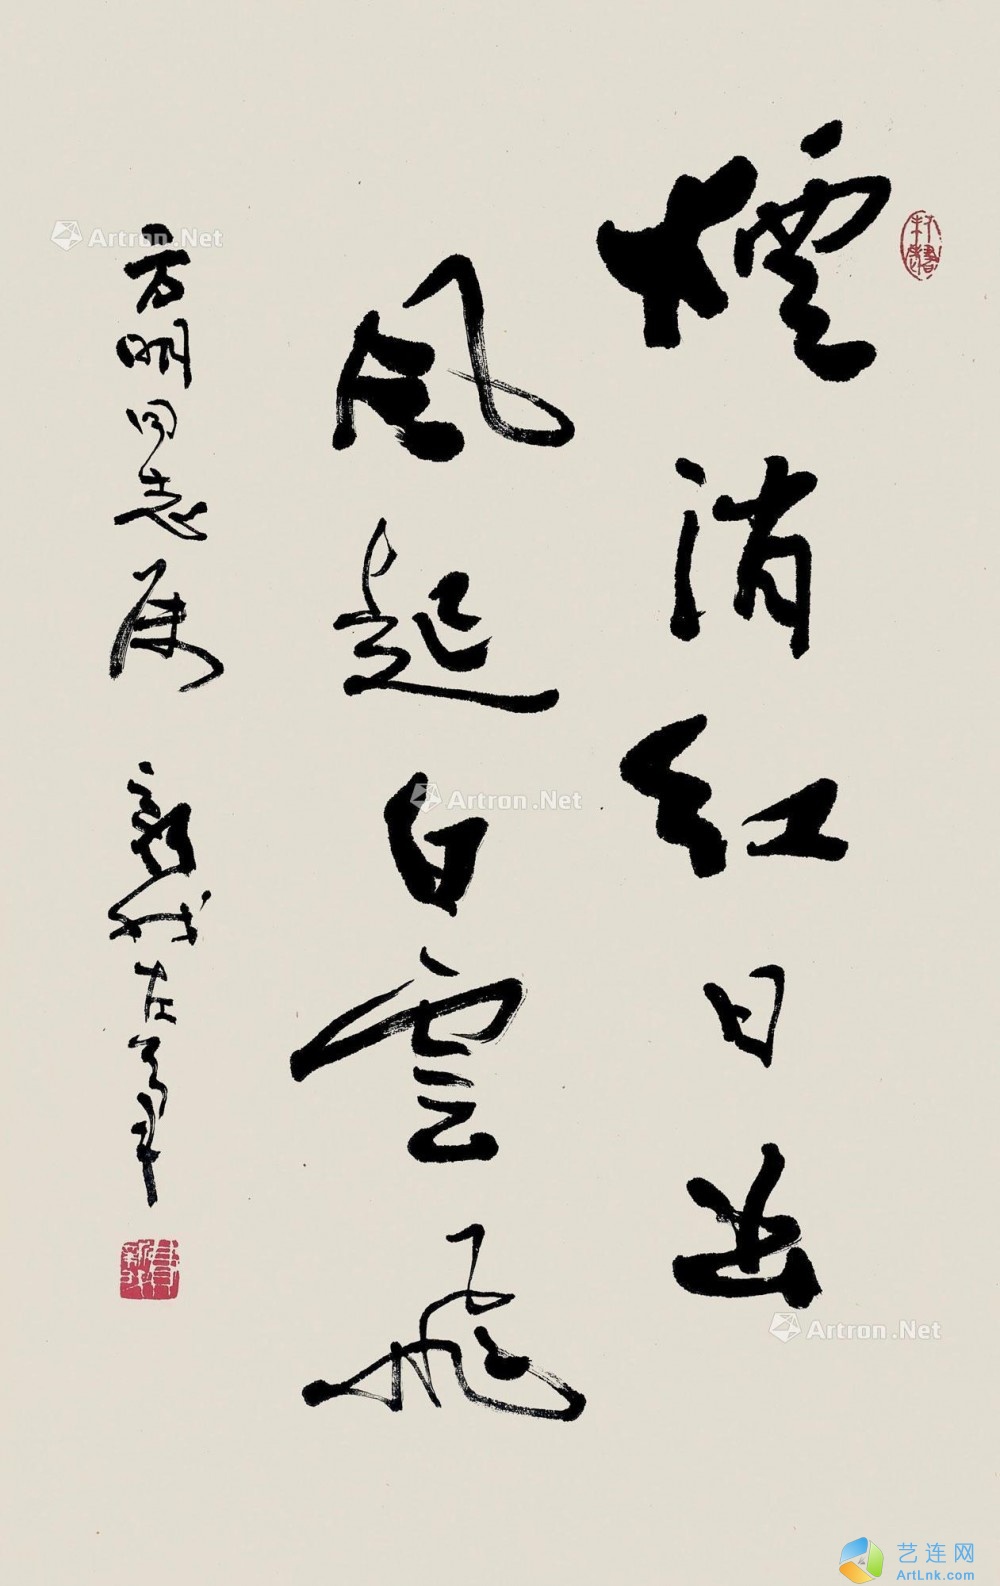 煙消紅日出
風起白雲飛
方明同志属 新我左筆
Artron.Net
Artron.Net
Artron.Net
艺连网
ArtLnk.com